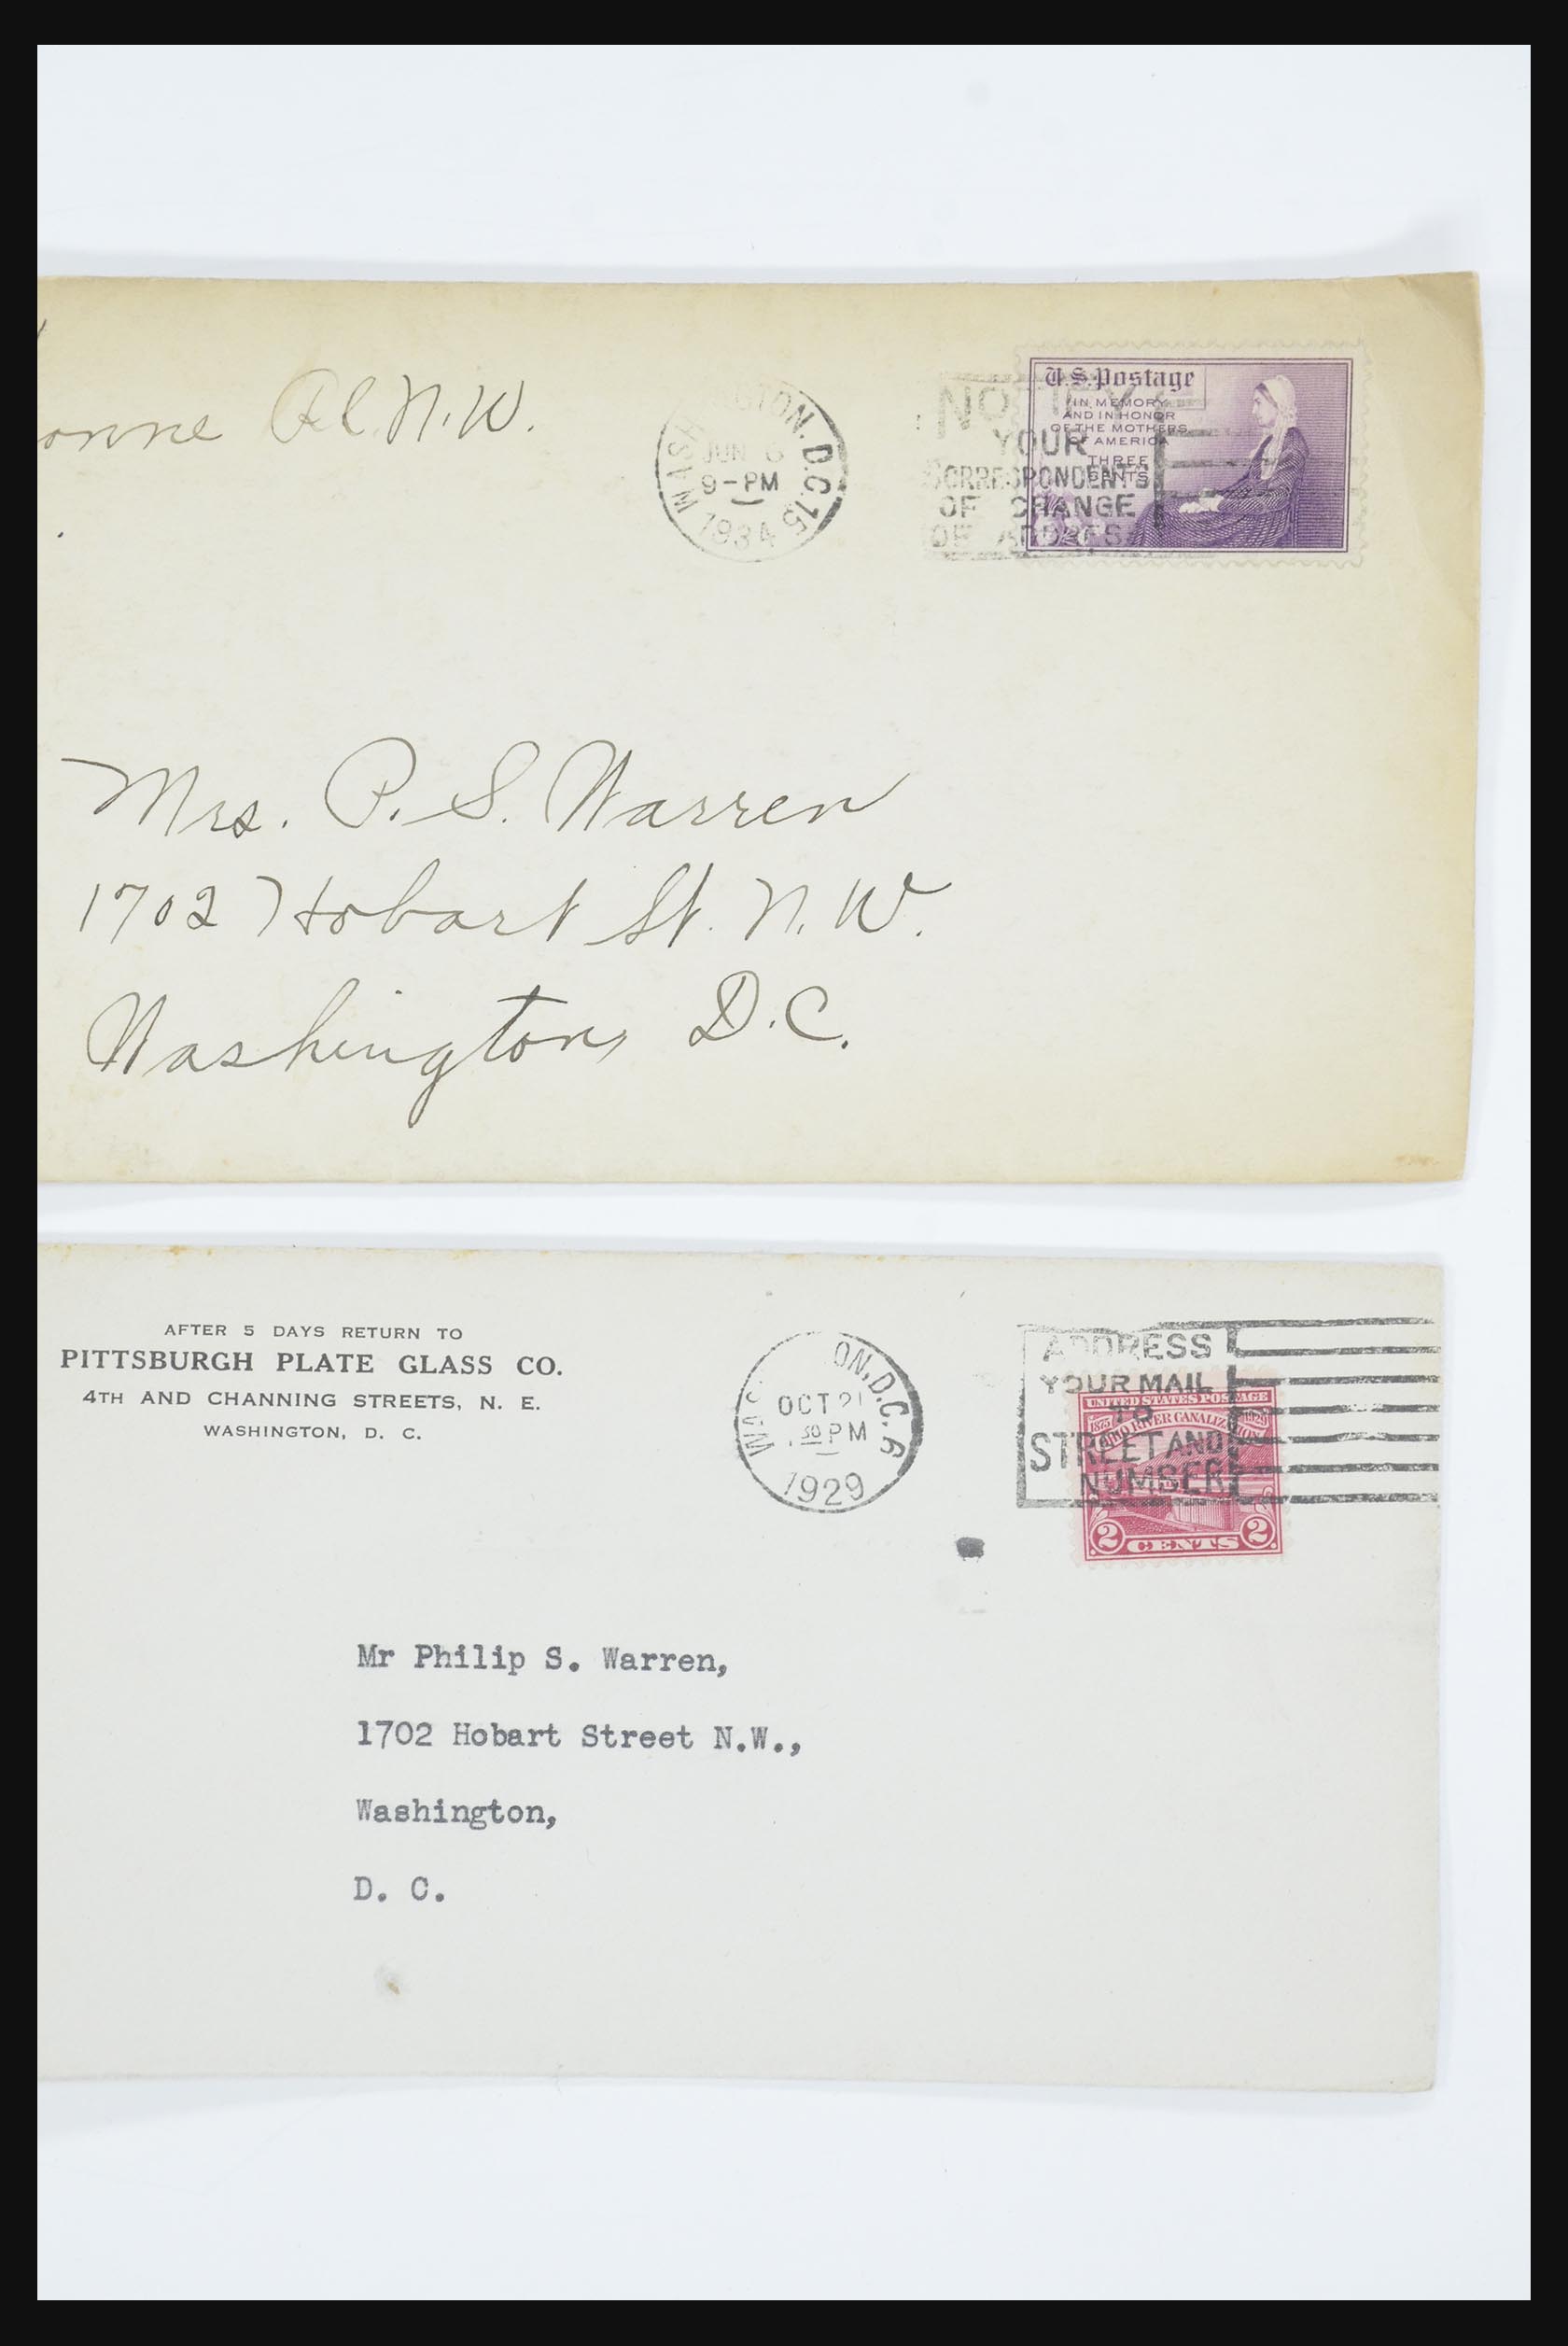 Pl N.W.
WASHINGTON, D.C. 15
JUN 6
9-PM
1934
NOTIFY
YOUR
CORRESPONDENTS
OF CHANGE
OF ADDRESS
U.S. Postage
IN MEMORY
AND IN HONOR
OF THE MOTHERS
OF AMERICA
THREE
CENTS
Mrs. P. S. Warren
1702 Hobart St. N. W.
Washington, D.C.
AFTER 5 DAYS RETURN TO
PITTSBURGH PLATE GLASS CO.
4TH AND CHANNING STREETS, N. E.
WASHINGTON, D. C.
WAS ON, D.C. 6
OCT 21
30 PM
1929
ADDRESS
YOUR MAIL
TO
STREET AND
NUMBER
UNITED STATES POSTAGE
1875 OHIO RIVER CANALIZATION 1929
2 CENTS 2
Mr Philip S. Warren,
1702 Hobart Street N.W.,
Washington,
D. C.